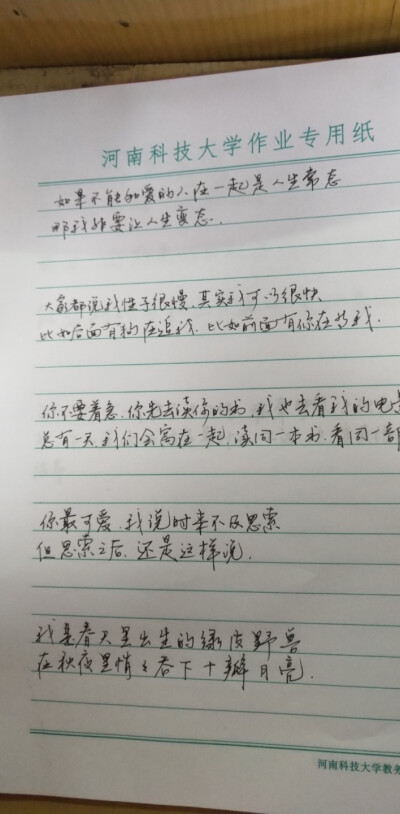 河南科技大学作业专用纸
如果不能和爱的人在一起是人生常态
那我非要让人生变态.
大家都说我性子很慢,其实我可以很快
比如后面有狗在追我,比如前面有你在等我.
你不要着急,你先去读你的书,我也去看我的电
总有一天,我们会窝在一起,读同一本书,看同一部
你最可爱,我说时来不及思索
但思索之后,还是这样说.
我是春天里出生的绿皮野兽
在秋夜里悄悄吞下十瓣月亮.
河南科技大学教务